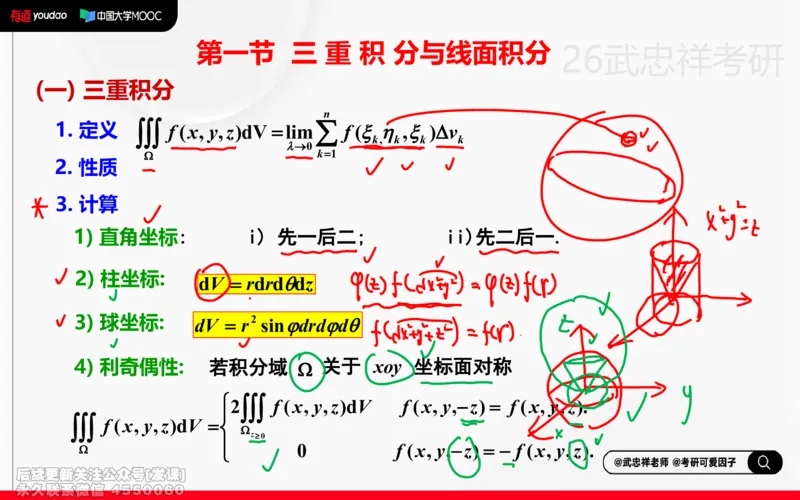 有道 youdao 中国大学MOOC
第一节 三 重 积 分与线面积分
26武忠祥考研
(一) 三重积分
1. 定义 ∭_Ω f(x, y, z)dV = lim_{λ→0} ∑_{k=1}^{n} f(ξ_k, η_k, ξ_k)Δv_k
2. 性质
* 3. 计算
x²+y²=z
1) 直角坐标: i) 先一后二; ii)先二后一.
2) 柱坐标: dV = rdrdθdz φ(z) f(√x²+y²) = φ(z) f(r)
3) 球坐标: dV = r² sinφdrdφdθ f(√x²+y²+z²) = f(r).
z
4) 利奇偶性: 若积分域 Ω 关于 xoy 坐标面对称
y
x
∭_Ω f(x, y, z)dV = { 2∭_{Ω_{z≥0}} f(x, y, z)dV f(x, y,−z) = f(x, y, z).
0 f(x, y,−z) = − f(x, y, z).
@武忠祥老师 @考研可爱因子
后续更新关注公众号[发课]
永久联系微信 4550060